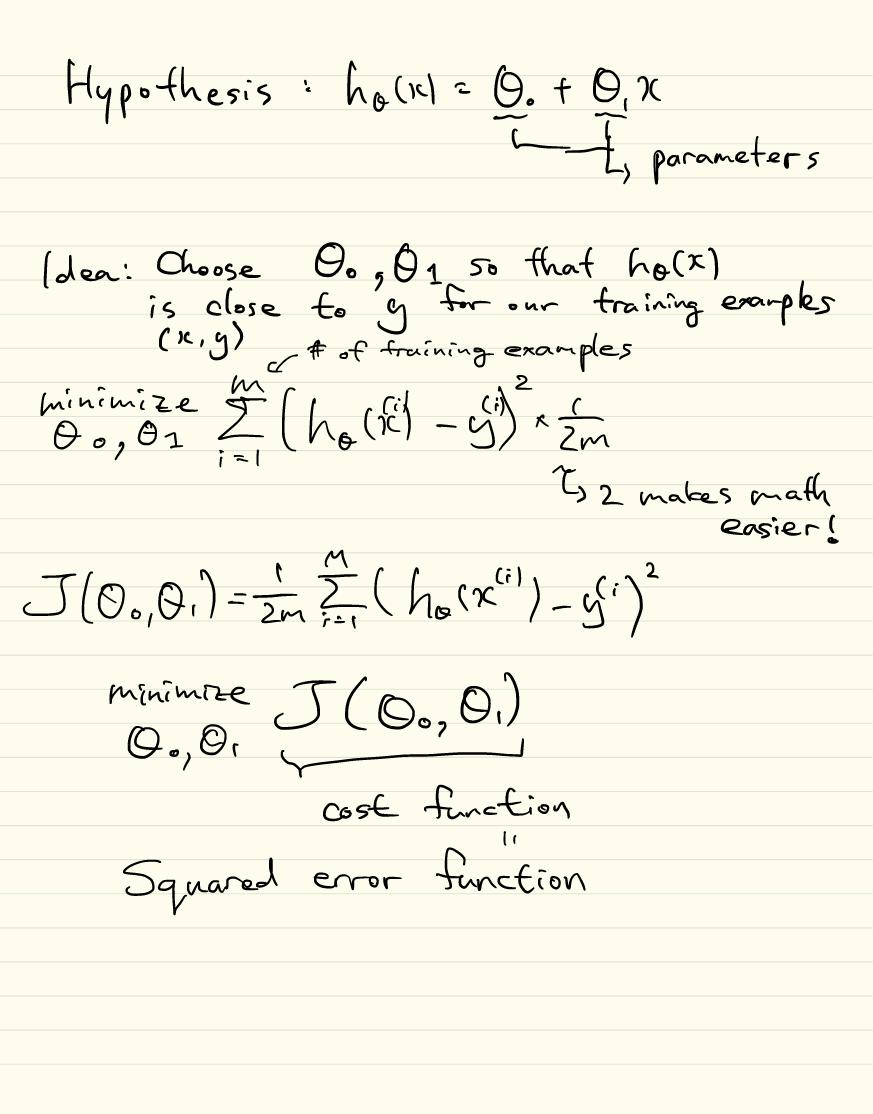 Hypothesis : hθ(x) = θ₀ + θ₁x
parameters
Idea: Choose θ₀, θ1 so that hθ(x)
is close to y for our training examples
(x,y)
# of training examples
minimize θ₀, θ1 m Σ i=1 (hθ(x⁽ⁱ⁾) - y⁽ⁱ⁾)² × 1/2m
2 makes math
easier!
J(θ₀,θ₁) = 1/2m M Σ i=1 (hθ(x⁽ⁱ⁾) - y⁽ⁱ⁾)²
minimize θ₀, θ₁ J(θ₀, θ₁)
cost function
=
Squared error function